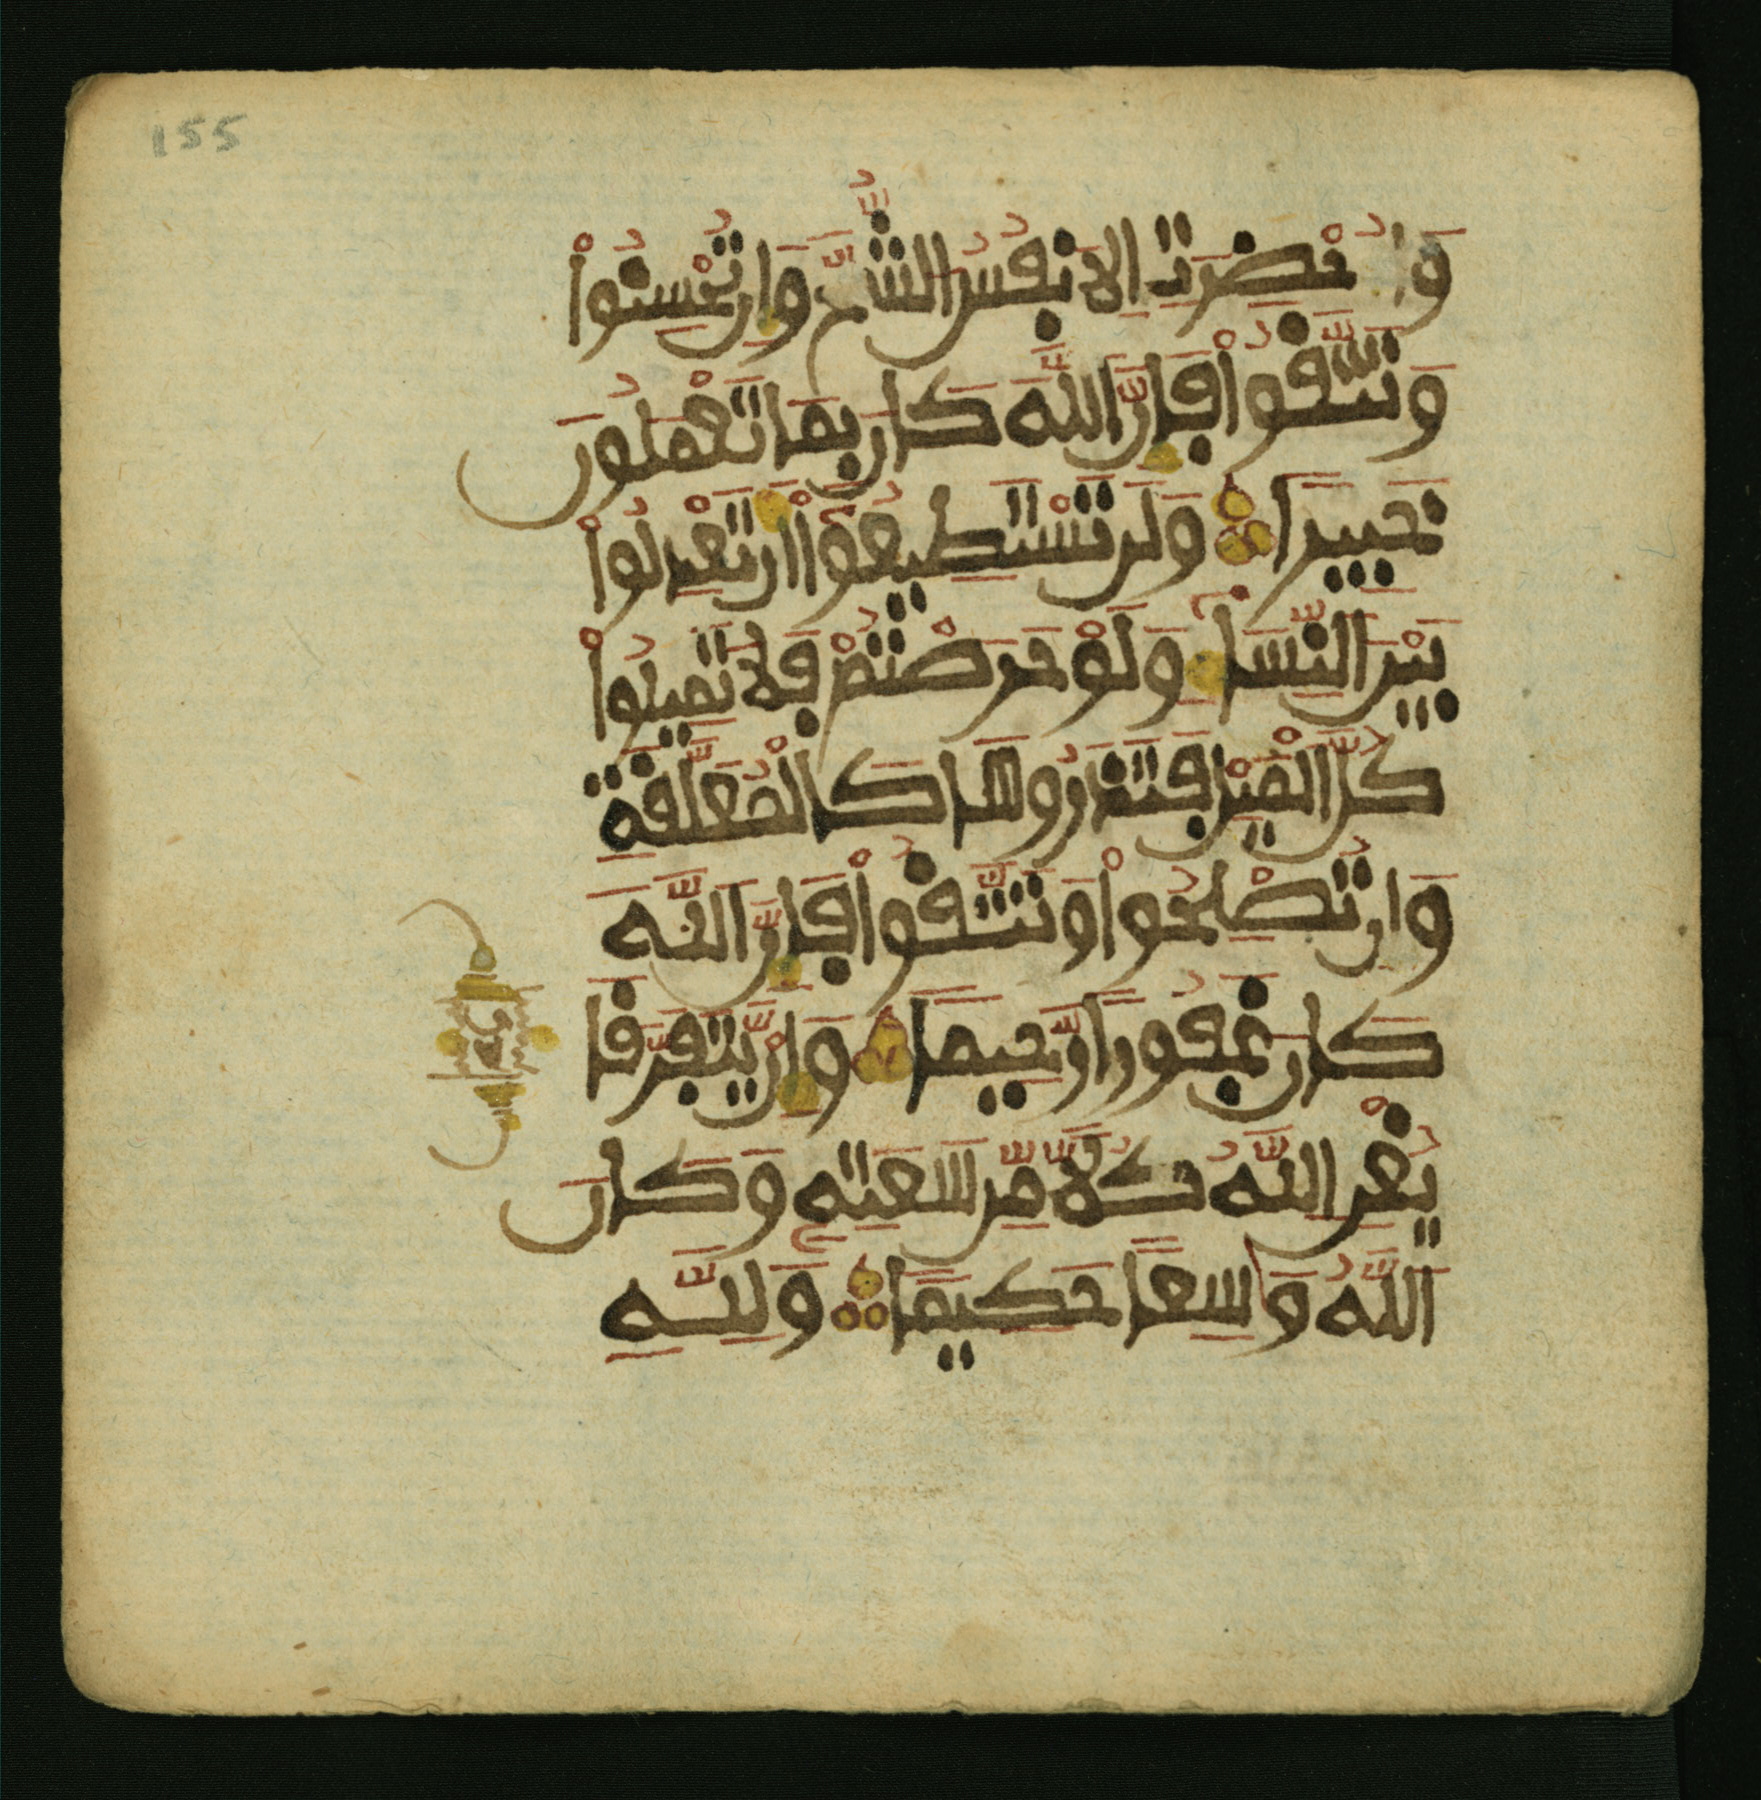 155
وَأُحْضِرَتِ الِانفُسُ الشُّحَّ وَإِن تُحْسِنُواْ
وَتَتَّقُواْ فَإِنَّ اَللَّهَ كَانَ بِمَا تَعْمَلُونَ
خَبِيرا وَلَن تَسْتَطِيعُوٓاْ أَن تَعْدِلُواْ
بَيْنَ اَلنِّسَآءِ وَلَوْ حَرَصْتُمْ فَلَا تَمِيلُواْ
كُلَّ اَلْمَيْلِ فَتَذَرُوهَا كَالْمُعَلَّقَةِ
وَإِن تُصْلِحُواْ وَتَتَّقُواْ فَإِنَّ اَللَّهَ
كَانَ غَفُوراً رَّحِيماً وَإِنْ يَّتَفَرَّقَا
يُغْنِ اِللَّهُ كُلّاً مِّن سَعَتِهِ وَكَانَ
اَللَّهُ وَاسِعاً حَكِيماً وَلِلَّهِ